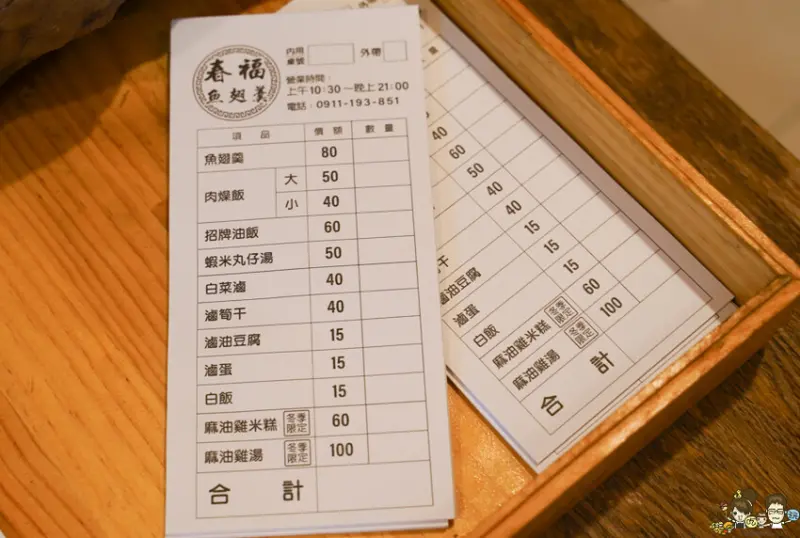 春福
魚翅羹
內用 外帶
桌號
營業時間：
上午10:30～晚上21:00
電話：0911-193-851
項品 價額 數量
魚翅羹 80
肉燥飯 大 50
小 40
招牌油飯 60
蝦米丸仔湯 50
白菜滷 40
滷筍干 40
滷油豆腐 15
滷蛋 15
白飯 15
麻油雞米糕 冬季限定 60
麻油雞湯 冬季限定 100
合計
40
60
50
40
40
干 15
油豆腐 15
滷蛋 15
白飯 60
麻油雞米糕 冬季限定 100
麻油雞湯 冬季限定
合計